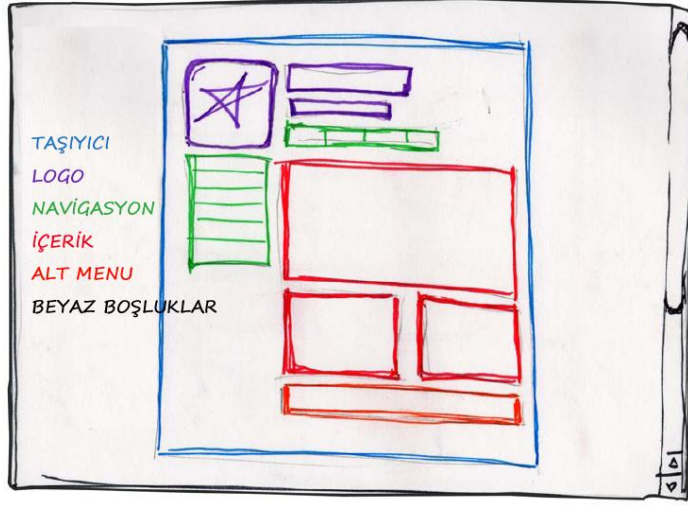 TAŞIYICI
LOGO
NAVİGASYON
İÇERİK
ALT MENU
BEYAZ BOŞLUKLAR